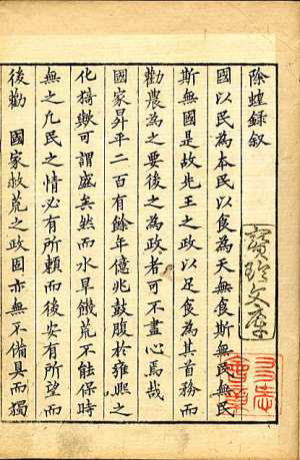 除蝗錄叙
國以民為本民以食為天無食斯無民無民
斯無國是故先王之政以足食為其首務而
勸農為之要後之為政者可不盡心焉哉
國家昇平二百有餘年億兆鼓腹於雍熙之
化猗歟可謂盛矣然而水旱饑荒不能保時
無之凢民之情必有所賴而後安有所望而
後勸 國家救荒之政固亦無不備具而獨
寶玲文庫